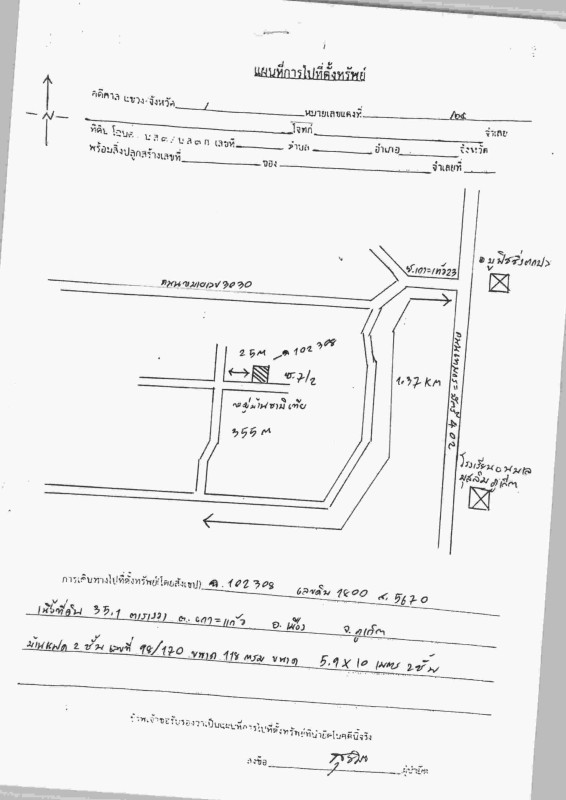 แผนที่การไปที่ตั้งทรัพย์
คดีศาล แขวง-จังหวัด / หมายเลขแดงที่ /๒๕
โจทก์ จำเลย
ที่ดิน โฉนด น.ส.๓ / น.ส.๓ ก. เลขที่ ตำบล อำเภอ จังหวัด
พร้อมสิ่งปลูกสร้างเลขที่ ของ จำเลยที่
N
ซ.เกาะแก้ว23
ถนนหมายเลข 3030
25 M ฉ.102308
ซ.7/2
1.37 KM
355 M
402
โรงเรียน
มุสลิมภูเก็ต
การเดินทางไปที่ตั้งทรัพย์(โดยสังเขป) ฉ.102308 เลขดิน 1800 ส.5670
เนื้อที่ดิน 35.1 ตารางวา ต.เกาะแก้ว อ.เมือง จ.ภูเก็ต
บ้านแฝด 2 ชั้น เลขที่ 98/170 ขนาด 118 ตรม ขนาด 5.9 X 10 เมตร 2 ชั้น
ข้าพเจ้าขอรับรองว่าเป็นแผนที่การไปที่ตั้งทรัพย์ที่นำยึดในคดีนี้จริง
ลงชื่อ ผู้นำยึด